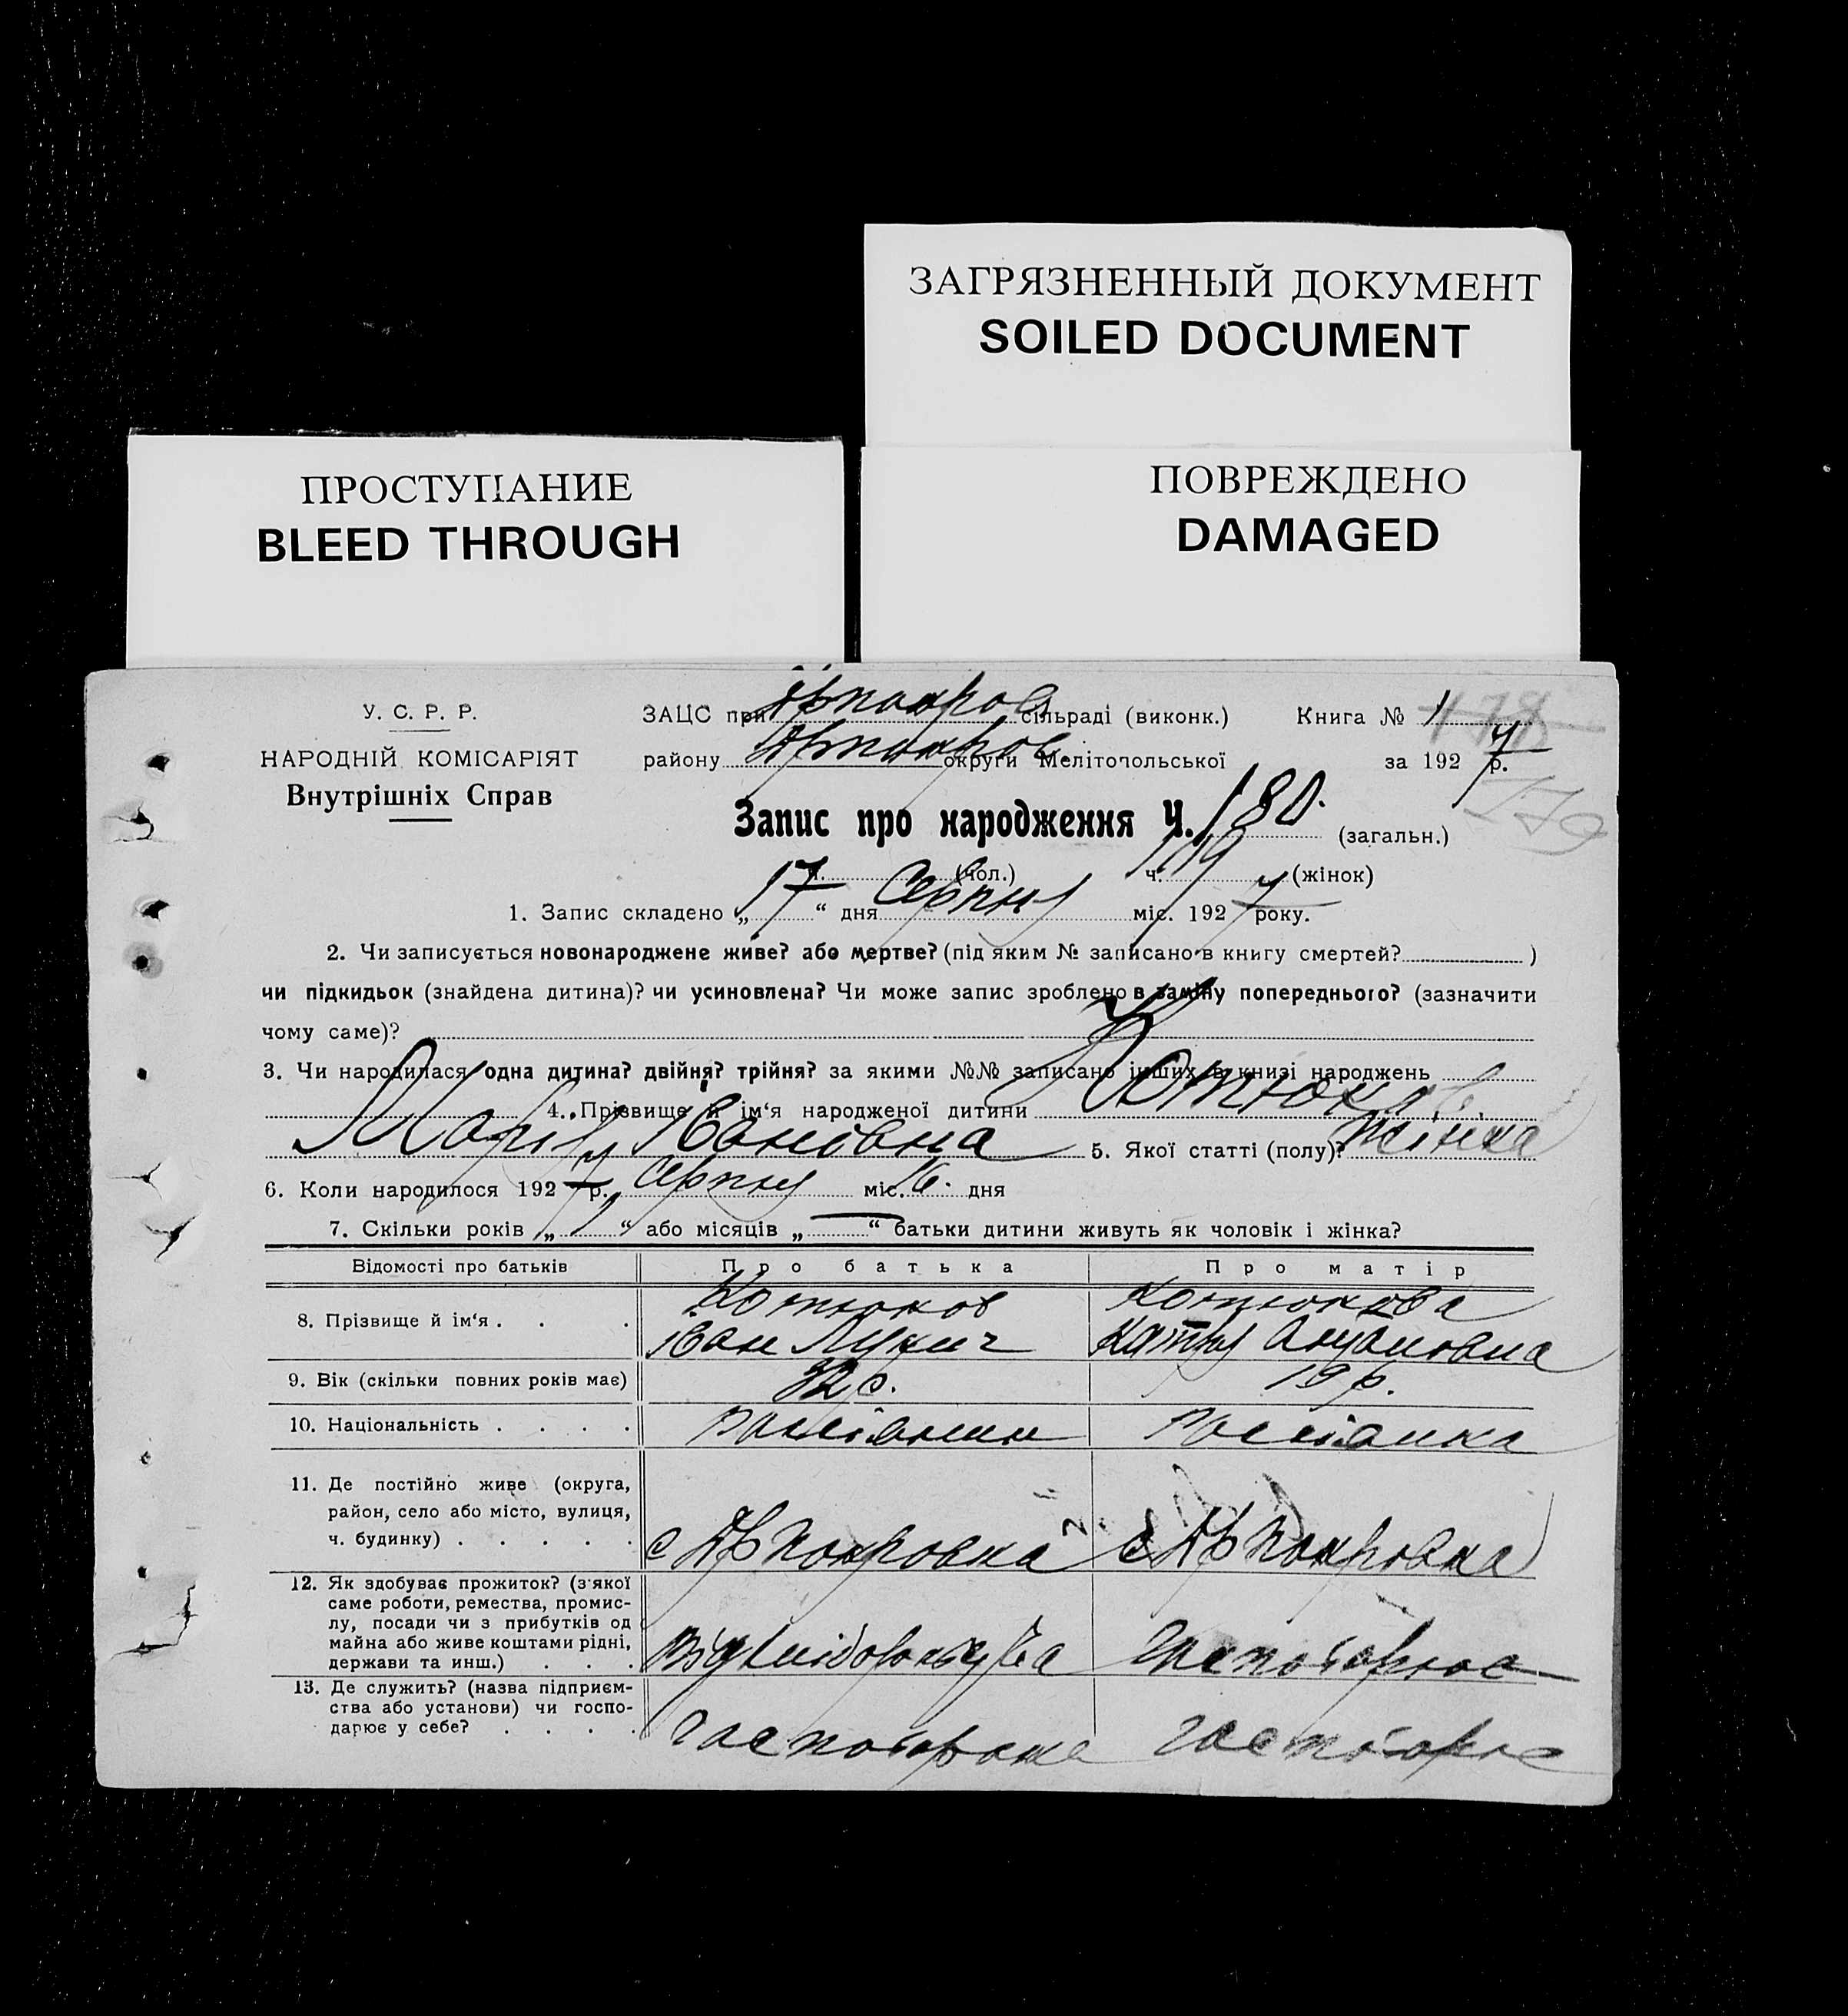 ЗАГРЯЗНЕННЫЙ ДОКУМЕНТ
SOILED DOCUMENT
ПРОСТУПАНИЕ
BLEED THROUGH
ПОВРЕЖДЕНО
DAMAGED
У. С. Р. Р.
НАРОДНІЙ КОМІСАРІЯТ
Внутрішніх Справ
ЗАЦС при сільраді (виконк.) Книга № 1 178
району округи Мелітопольської за 1927 р.
Запис про народження Ч. 180. (загальн.)
179
ч. (чол.) ч. 119 (жінок)
1. Запис складено „17“ дня Серпня міс. 1927 року.
2. Чи записується новонароджене живе? або мертве? (під яким № записано в книгу смертей? )
чи підкидьок (знайдена дитина)? чи усиновлена? Чи може запис зроблено в заміну попереднього? (зазначити
чому саме)?
3. Чи народилася одна дитина? двійня? трійня? за якими №№ записано інших в книзі народжень
4. Прізвище й ім‘я народженої дитини Котюков
Марія Івановна 5. Якої статті (полу)? жінка
6. Коли народилося 1927 р. Серпня міс. 16. дня
7. Скільки років „1“ або місяців „—“ батьки дитини живуть як чоловік і жінка?
Відомості про батьків Про батька Про матір
8. Прізвище й ім‘я . . . Котюков Котюкова
Іван Лукич Катря
9. Вік (скільки повних років має) 32 р. 19 р.
10. Національність . . . . россіянин россіянка
11. Де постійно живе (округа,
район, село або місто, вулиця,
ч. будинку) . . . . . с Покровка с Покровка
12. Як здобуває прожиток? (з якої
саме роботи, ремества, промис-
лу, посади чи з прибутків од
майна або живе коштами рідні,
держави та инш.) . . .
13. Де служить? (назва підприєм-
ства або установи) чи госпо-
дарює у себе? . . . .